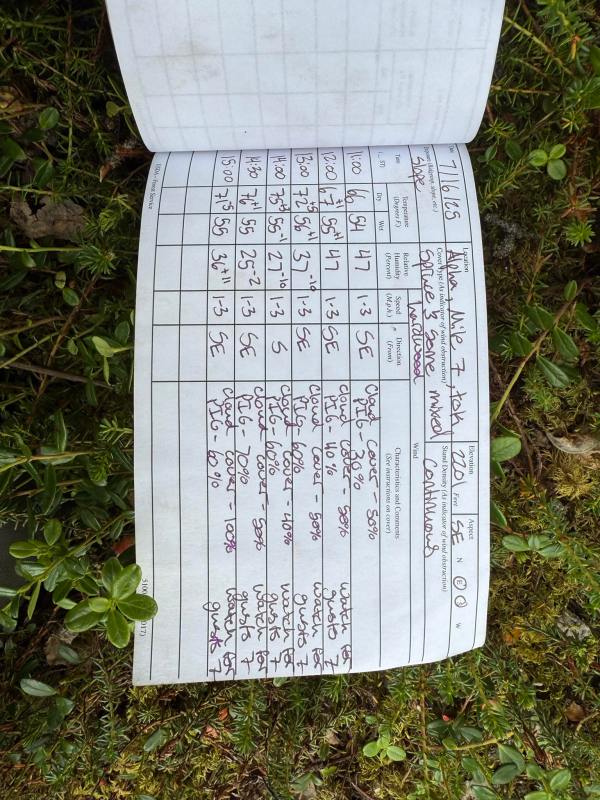 Date 7/16/25 Location Alpha, Mile 7, tok Elevation 2201 Feet Aspect SE N E S W
Exposure (Ridgetop, slope, etc.) Slope Cover Type (As indicator of wind obstruction) Spruce & some mixed hardwood Stand Density (As indicator of wind obstruction) Continuous
Time Temperature (Degrees F.) Relative Humidity (Percent) Wind Characteristics and Comments (See instructions on cover)
Dry Wet Speed (M.p.h.) Direction (From)
11:00 66 54 47 1-3 SE Cloud cover - 50%
PIG - 30%
12:00 67 +1 55 +1 47 1-3 SE cloud cover - 50% watch for
PIG - 40% gusts 7
13:00 72 +5 56 +1 37 -10 1-3 SE cloud cover - 50% watch for
PIG - 60% gusts 7
14:00 75 +3 55 -1 27 -10 1-3 S cloud cover - 40% watch for
PIG - 60% gusts 7
14:30 76 +1 55 25 -2 1-3 SE cloud cover - 50% watch for
PIG - 70% gusts 7
15:00 71 -5 55 36 +11 1-3 SE cloud cover - 100% watch for
PIG - 60% gusts 7